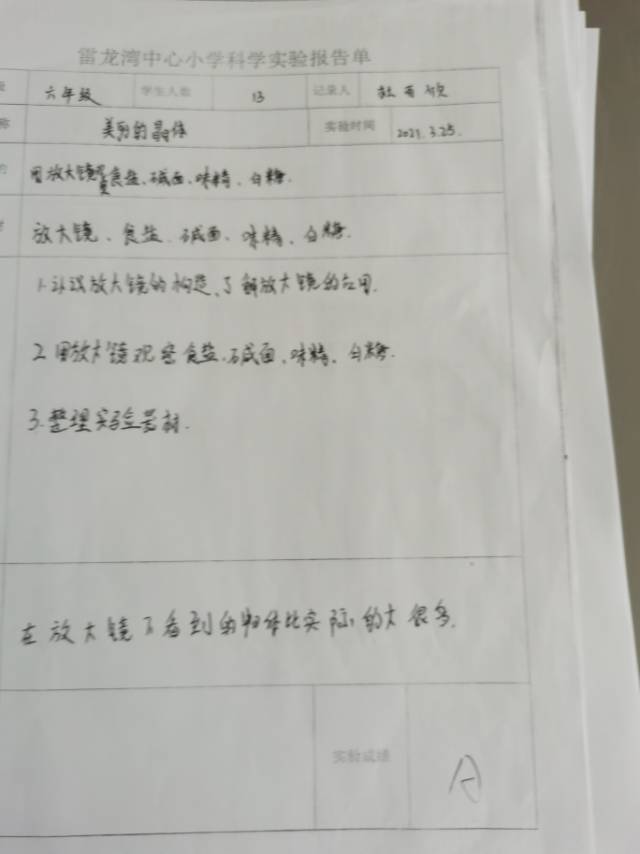 雷龙湾中心小学科学实验报告单
级 六年级 学生人数 13 记录人 杜
称 美丽的晶体 实验时间 2021.3.25.
的 用放大镜观察食盐、碱面、味精、白糖.
材 放大镜、食盐、碱面、味精、白糖.
1.认识放大镜的构造、了解放大镜的应用.
2.用放大镜观察食盐、碱面、味精、白糖.
3.整理实验器材.
在放大镜下看到的物体比实际的大很多.
实验成绩 A